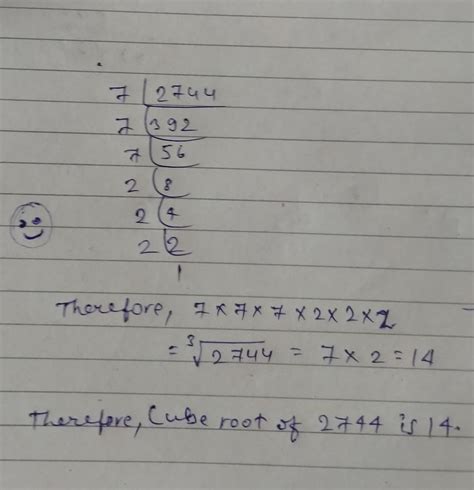 7 | 2744
7 | 392
7 | 56
2 | 8
2 | 4
2 | 2
1
Therefore, 7 × 7 × 7 × 2 × 2 × 2
= ∛2744 = 7 × 2 = 14
Therefore, Cube root of 2744 is 14.